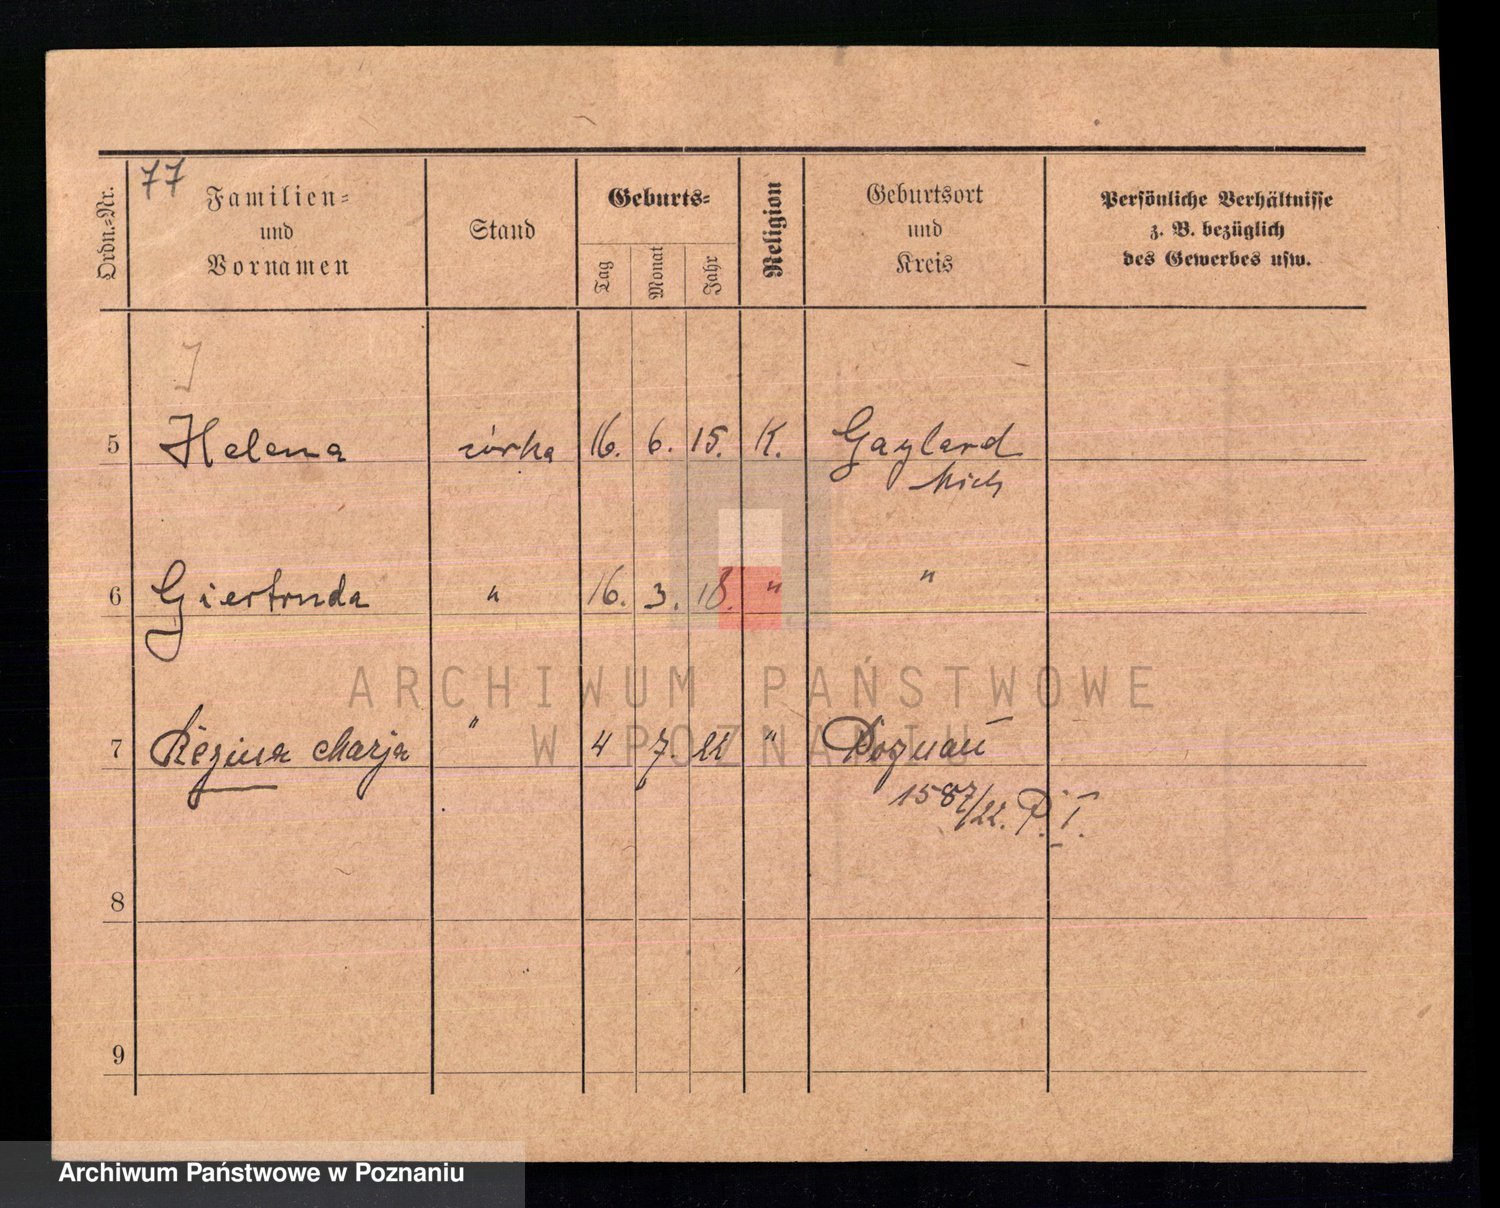 77
Ordn.-Nr.
Familien-
und
Vornamen
Stand
Geburts-
Tag
Monat
Jahr
Religion
Geburtsort
und
Kreis
Persönliche Verhältnisse
z. B. bezüglich
des Gewerbes usw.
5 Helena córka 16. 6. 15. K. Gaylard
Mich
6 Giertruda " 16. 3. 18. " "
ARCHIWUM PAŃSTWOWE
W POZNANIU
7 Regina Marja " 4 7. 22 " Poznań
1587/22. P. T.
8
9
Archiwum Państwowe w Poznaniu